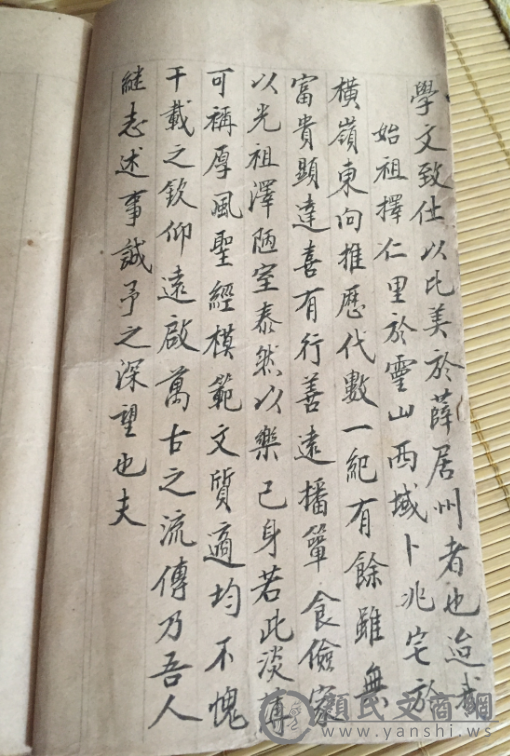 學文致仕以比美於薛居州者也迨我
始祖擇仁里於靈山西域卜兆宅於
橫嶺東向推歷代數一紀有餘雖無
富貴顯達喜有行善遠播簞食儉家
以光祖澤陋室泰然以樂己身若此淡薄
可稱厚風聖經模範文質適均不愧
千載之欽仰遠啟萬古之流傳乃吾人
繼志述事誠予之深望也夫
顏氏文商網
www.yanshi.ws